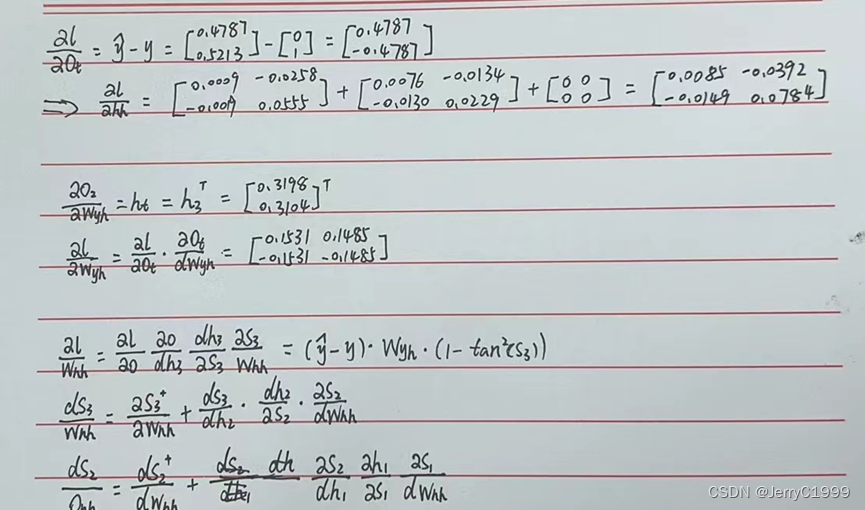 ∂l/∂Ot = ŷ - y = [0.4787 0.5213] - [0 1] = [0.4787 -0.4787]
⇒ ∂l/∂hh = [0.0009 -0.0258 -0.009 0.0555] + [0.0076 -0.0134 -0.0130 0.0229] + [0 0 0 0] = [0.0085 -0.0392 -0.0149 0.0784]
∂O2/∂Wyh = ht = h3^T = [0.3198 0.3104]^T
∂l/∂Wyh = ∂l/∂Ot · ∂Ot/dWyh = [0.1531 0.1485 -0.1531 -0.1485]
∂l/Whh = ∂l/∂O ∂O/dh3 dh3/∂S3 ∂S3/Whh = (ŷ - y) · Wyh · (1 - tan²(S3))
dS3/Whh = ∂S3^+/∂Whh + dS3/dh2 · dh2/∂S2 · ∂S2/dWhh
dS2/ = dS2^+/dWhh + dS2 dh ∂S2/dh1 ∂h1/∂S1 ∂S1/dWhh
CSDN @JerryC1999